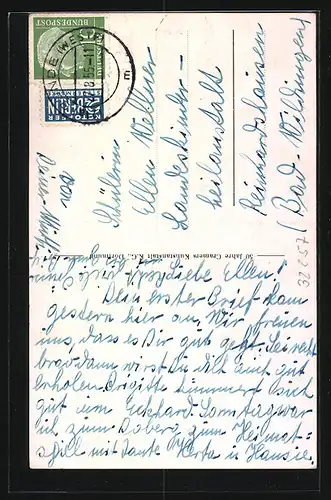 DEUTSCHE
BUNDESPOST
NOTOPFER
2 BERLIN
STEUERMARKE
NDE (WEST
55-11
E
Schülerin
Ellen Wellner
Landeskinder-
heilanstalt
Reinhardshausen
(Bad-Wildungen)
50 Jahre Cramers Kunstanstalt K.G., Dortmund
32257
Liebe Ellen!
Dein erster Brief kam
gestern hier an. Wir freuen
uns, dass es Dir gut geht. Sei recht
brav dann wirst Du Dich auch gut
erholen. Brigitte kümmert sich
gut um Eckhard. Sonntag war
ich zum Doberg zum Heimat-
mit Tante Herta u. Hansie.
von
Deiner Mutti